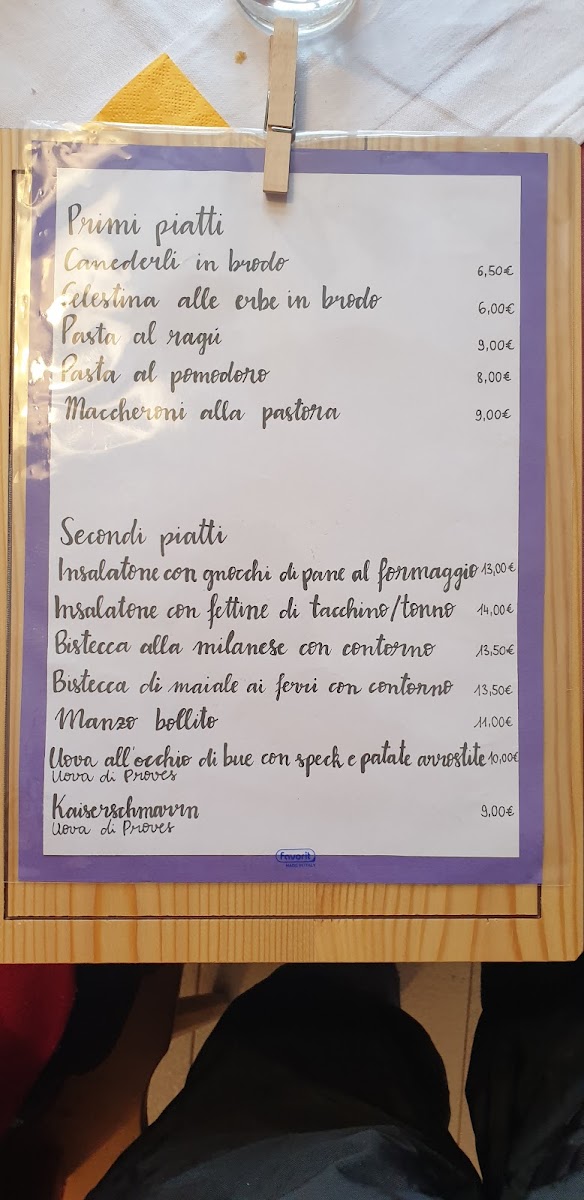 Primi piatti
Canederli in brodo 6,50€
Celestina alle erbe in brodo 6,00€
Pasta al ragú 9,00€
Pasta al pomodoro 8,00€
Maccheroni alla pastora 9,00€
Secondi piatti
Insalatone con gnocchi di pane al formaggio 13,00€
Insalatone con fettine di tacchino/tonno 14,00€
Bistecca alla milanese con contorno 13,50€
Bistecca di maiale ai ferri con contorno 13,50€
Manzo bollito 11.00€
Uova all'occhio di bue con speck e patate arrostite 10,00€
Uova di Proves
Kaiserschmarrn 9,00€
Uova di Proves
favorit